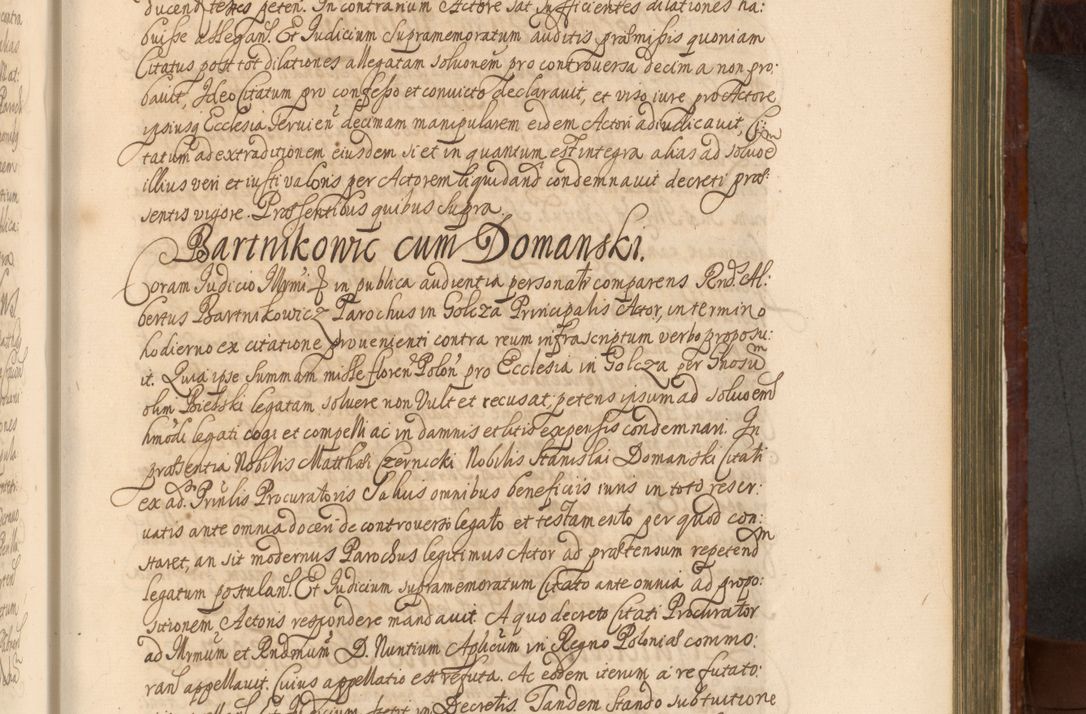 ducend testes peten. In contrarium Actore sat insufficientes dilationes ha:
buisse allegan. Et Judicium supramemoratum auditis præmissis quoniam
Citatus post tot dilationes allegatam solutionem pro controversa decima non pro:
bavit, Ideo Citatum pro confesso et convicto declaravit, et viso iure pro Actore
ipsiusq Ecclesia decimam manipularem eidem Actori adiudicavit, Ci:
tatum ad extraditionem eiusdem si et in quantum est integra alias ad solvoe
illius veri et iusti valoris per Actorem liquidand condemnavit decreti præ:
sentis vigore. Præsentibus quibus supra.
Bartnikowic cum Domanski.
Coram Judicio in publica audientia personalr comparens Rnd. Al:
bertus Bartnikowicz Parochus in Golcza Principalis Actor, in termino
hodierno ex citatione provenienti contra reum infrascriptum verbo proposu:
it. Quia ipse summam mille floren Polon pro Ecclesia in Golcza per
olim Bielski legatam solvere non Vult et recusat, petens ipsum ad
hmodi legati cogi et compelli ac in damnis et litis expensis condemnari. In
præsentia Nobilis Matthæi Czernicki Nobilis Stanislai Domanski Citati
ex ad Prinlis Procuratoris Salvis omnibus beneficiis iuris in toto reser:
vatis ante omnia doceri de controverso legato et testamento per quod con:
staret, an sit modernus Parochus legitimus Actor ad prætensum repetend
legatum postulan. Et Judicium supramemoratum Citato ante omnia ad propo:
sitionem Actoris respondere mandavit. A quo decreto Citati Procurator
ad Illrmum et Rndmum D. Nuntium Aplicum in Regno Poloniæ commo:
ran appellavit. Cuius appellatio est refuta. Ac eodem iterum a refutato
Et Judicium stetit in Decretis. Tandem stando substitutione